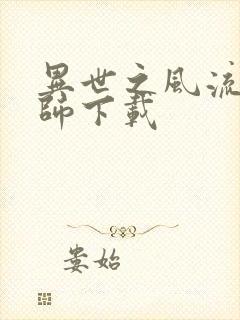 異世之風流
師下載
婁始